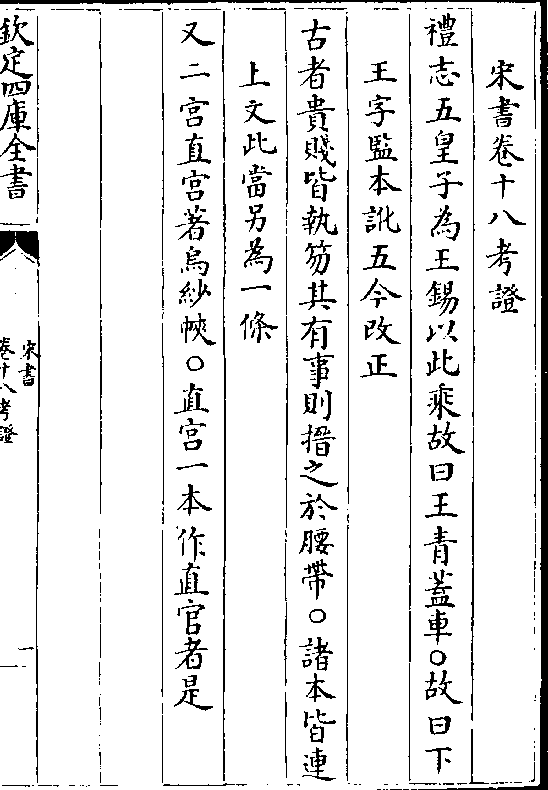 宋書卷十八考證
禮志五皇子為王錫以此乘故曰王青蓋車○故曰下
王字監本訛五今改正
古者貴賤皆執笏其有事則搢之於腰帶○諸本皆連
上文此當另為一條
又二宮直宮著烏紗帢○直宮一本作直官者是
欽定四庫全書
宋書
卷十八考證
一